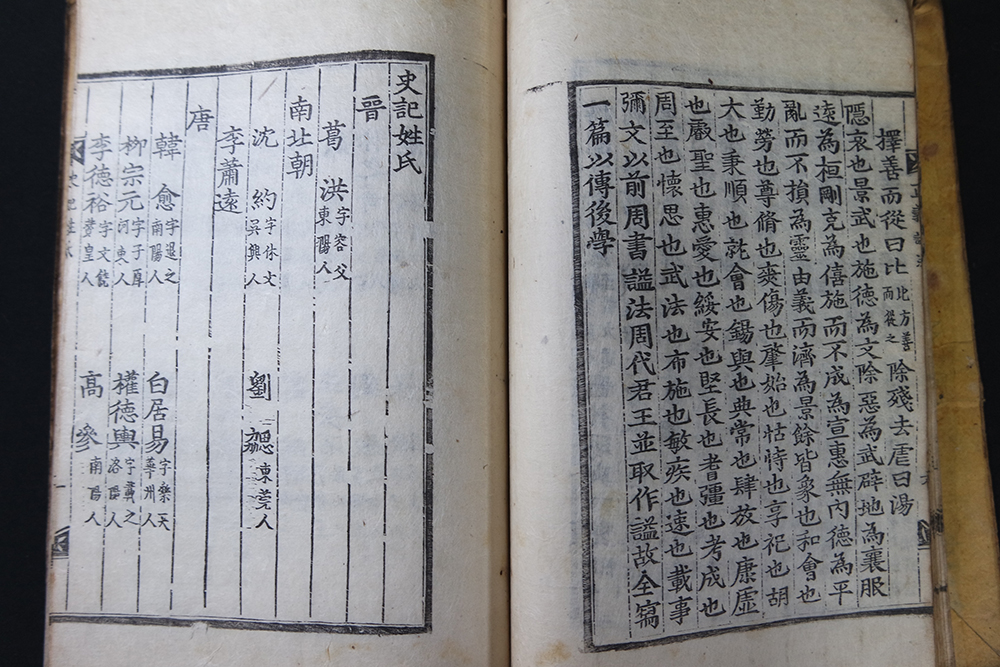 擇善而從曰比比方善而從之除殘去虐曰湯
隱哀也景武也施德為文除惡為武辟地為襄服
遠為桓剛克為僖施而不成為宣惠無內德為平
亂而不損為靈由義而濟為景餘皆象也和會也
勤勞也尊脩也爽傷也肇始也怙恃也享祀也胡
大也秉順也就會也錫與也典常也肆放也康虛
也嚴聖也惠愛也綏安也堅長也耆彊也考成也
周至也懷思也武法也布施也敏疾也速也載事
彌文以前周書謚法周代君王並取作謚故全寫
一篇以傳後學
史記姓氏
晉
葛洪字容父東陽人
南北朝
沈約字休文吳興人 劉勰東莞人
李蕭遠
唐
韓愈字退之南陽人 白居易字樂天華州人
柳宗元字子厚河東人 權德輿字載之洛陽人
李德裕字文饒贊皇人 高參南陽人